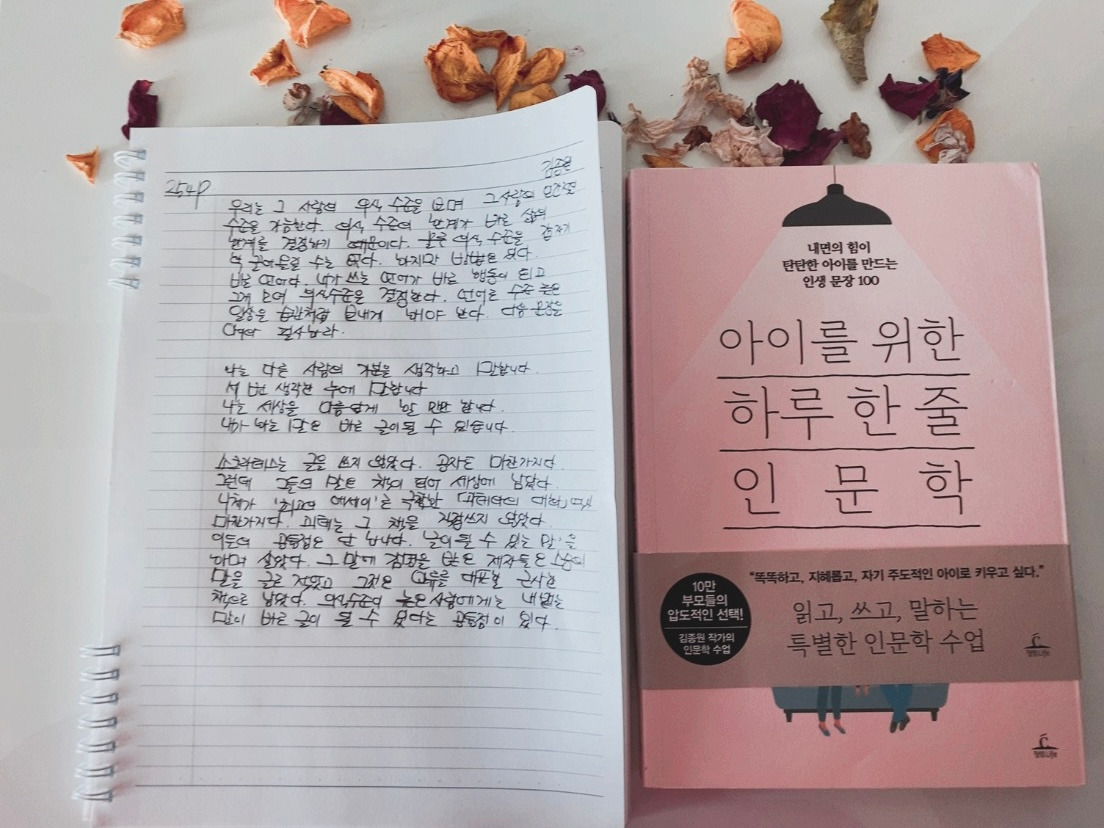 김종원
254p
우리는 그 사람의 의식 수준을 보며 그 사람의 인간적
수준을 가늠한다. 의식 수준의 한계가 바로 삶의
한계를 결정하기 때문이다. 물론 의식 수준을 갑자기
싹 끌어올릴 수는 없다. 하지만 방법은 있다.
바로 언어다. 내가 쓰는 언어가 바로 행동이 되고
그게 모여 의식수준을 결정한다. 언어로 수준 높은
일상을 습관처럼 보내게 해야 한다. 다음 문장을
필사하라.
나는 다른 사람의 기분을 생각하고 말합니다.
세 번 생각한 후에 말합니다
나는 세상을 아름답게 할 말만 합니다.
내가 하는 말은 바로 글이 될 수 있습니다.
소크라테스는 글을 쓰지 않았다. 공자도 마찬가지다.
그런데 그들의 말은 책이 되어 세상에 남았다.
니체가 '최고의 에세이'로 극찬한 「괴테와의 대화」 역시
마찬가지다. 괴테는 그 책을 직접쓰지 않았다
이들의 공통점은 단 하나다. '글이 될 수 있는 말'을
하며 살았다. 그 말에 감명을 받은 제자들은 스승의
말을 글로 적었고 그것은 그들을 대표할 근사한
책으로 남았다. 의식수준이 높은 사람에게는 내뱉는
말이 바로 글이 될 수 있다는 공통점이 있다.
내면의 힘이
탄탄한 아이를 만드는
인생 문장 100
아이를 위한
하루 한 줄
인문학
"똑똑하고, 지혜롭고, 자기 주도적인 아이로 키우고 싶다."
10만
부모들의
압도적인 선택!
김종원 작가의
인문학 수업
읽고, 쓰고, 말하는
특별한 인문학 수업
청림Life
청림Life